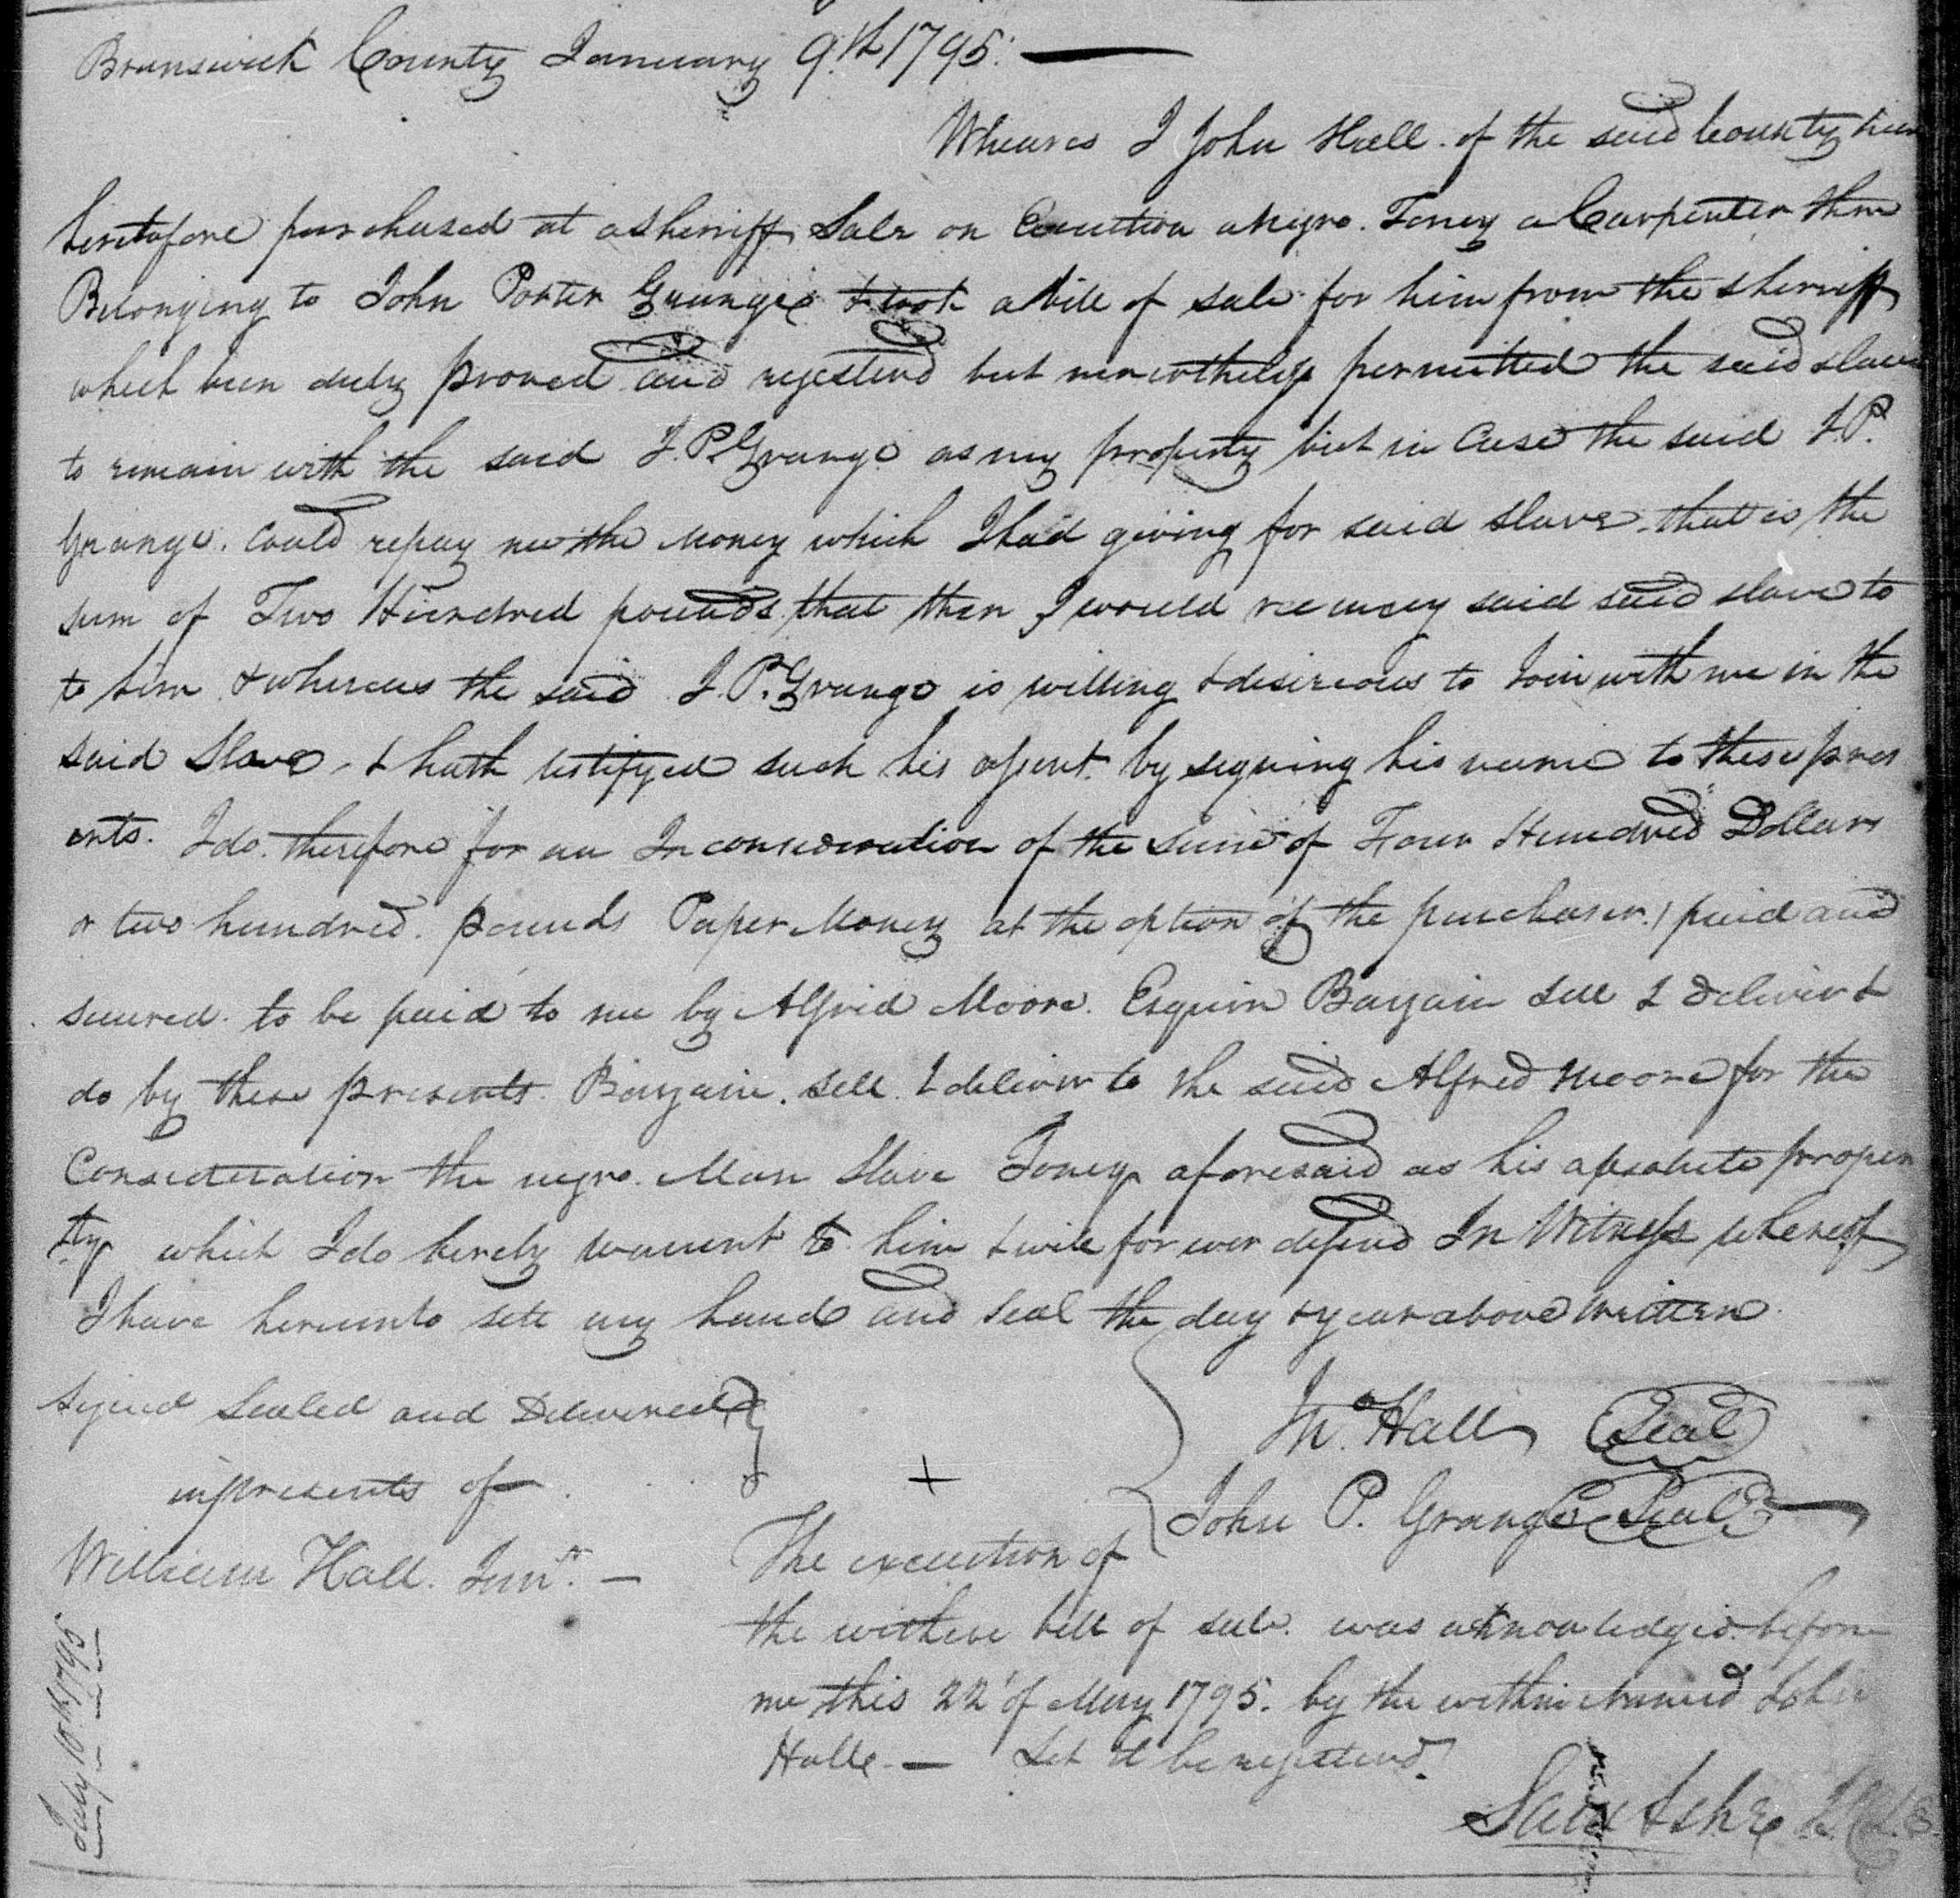 Brunswick County January 9.th 1795.
Wheares I John Hall of the said County have
heretofore purchased at a sherriff Sale on Execution a Negro. Toney a Carpenter then
Belonging to John Porter Grange & took a bill of sale for him from the sherriff
which been duly proved and regesterd but neverthelyss permitted the said slave
to remain with the said J. P. Grange as my property but in Case the said J. P.
Grange. Could repay me the Money which I had giving for said slave that is the
sum of Two Hundred pounds that then I would said said slave to
to him & whereas the said J. P. Grange is willing & desireious to Join with me in the
said Slave, & hath testifyed such his assent by signing his name to these pres
ents. I do. therefore for an In consideration of the sum of Four Hundred Dollars
or two hundred. pounds Paper Money at the option of the purchaser.) paid and
secured. to be paid to me by Alfrid Moore. Esquire Bargain sell & Deliver &
do by these presents Bargain. sell. & deliver to the said Alfred Moore for the
Consideration the negro. Man Slave Toney aforesaid as his absolute proper
ty which I do hereby warrent to him & will for ever defend In Witness whereof
I have hereunto sett my hand and seal the day & year above written.
Signed Sealed and Delivered
in presents of
William Hall. Junr. —
Jno. Hall Seal
John P. Grange Seal
The execution of
the within bill of sale. was acknowledgid. before
me this 22d of May 1795. by the within Named John
Hall. — Let it be regesterd.
Saml Ashe
July 10th 1795